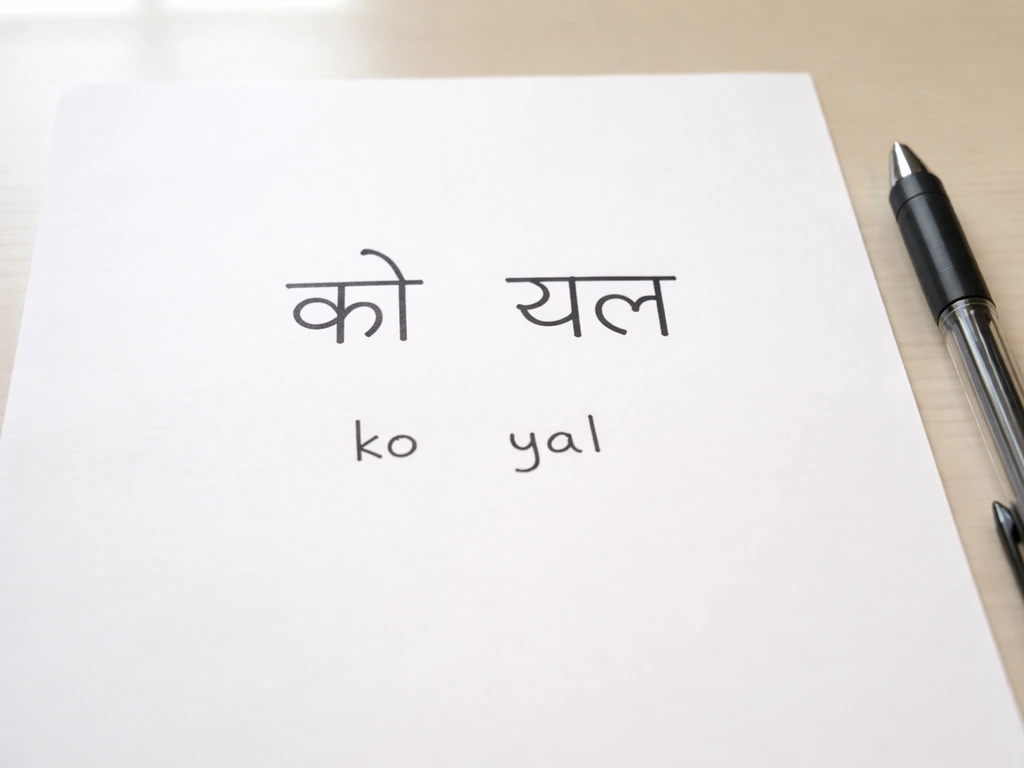 को यल
ko yal